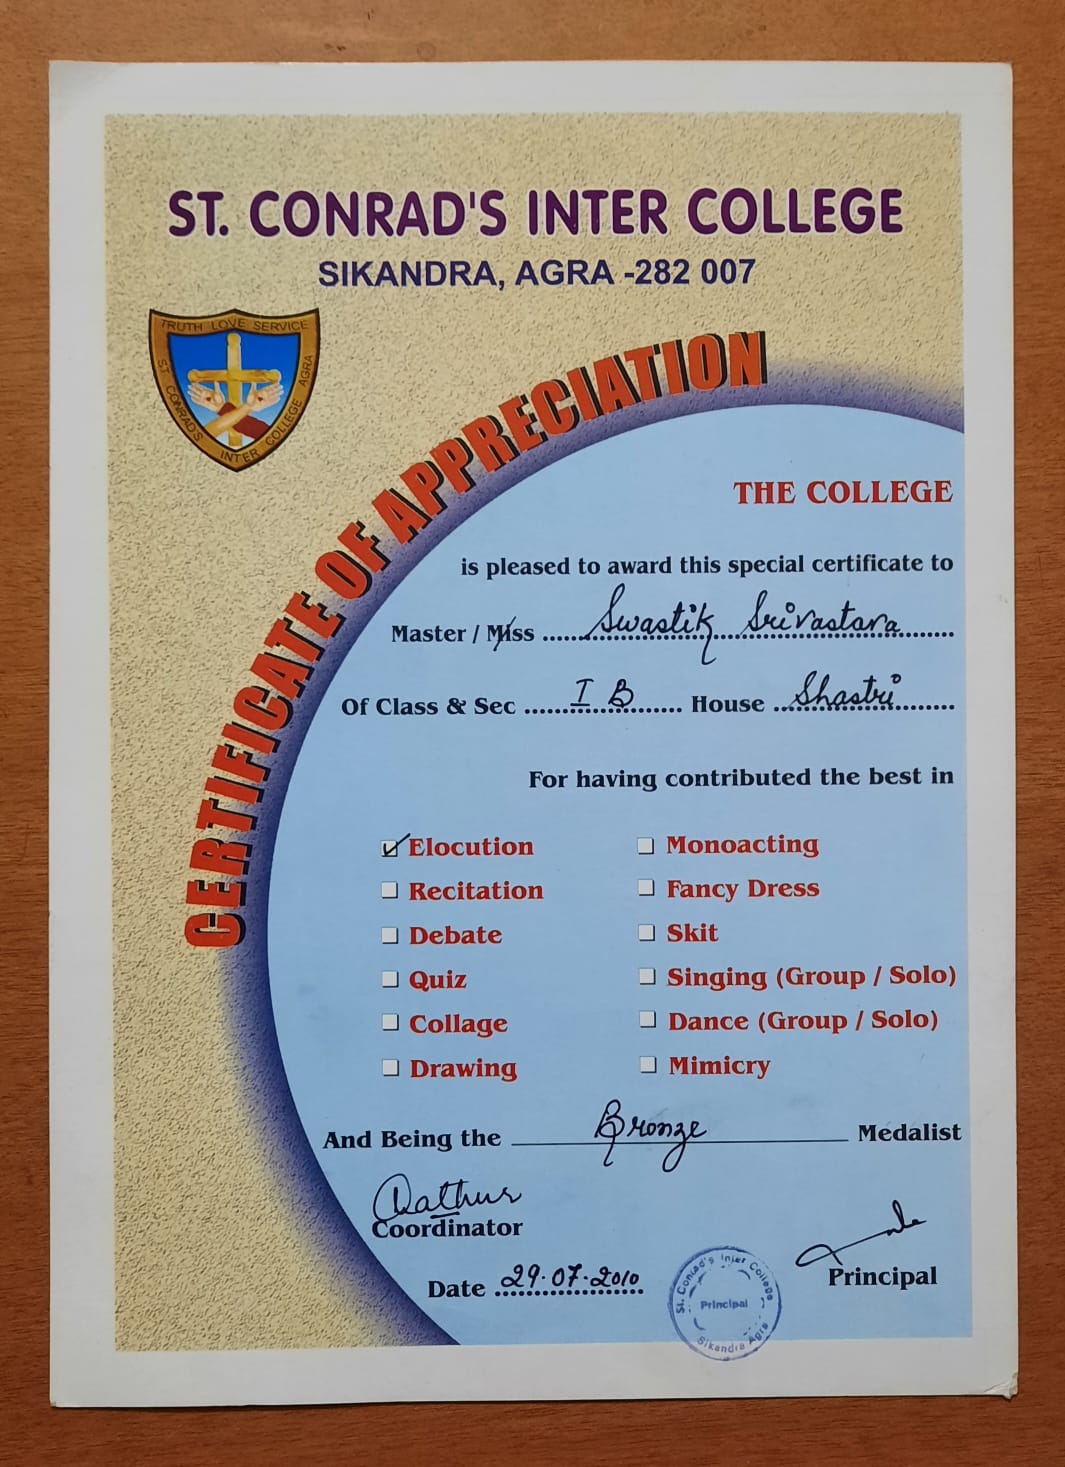 ST. CONRAD'S INTER COLLEGE
SIKANDRA, AGRA -282 007
TRUTH LOVE SERVICE
ST. CONRAD'S INTER COLLEGE AGRA
CERTIFICATE OF APPRECIATION
THE COLLEGE
is pleased to award this special certificate to
Master / Miss Swastik Srivastava
Of Class & Sec I B House Shastri
For having contributed the best in
Elocution Monoacting
Recitation Fancy Dress
Debate Skit
Quiz Singing (Group / Solo)
Collage Dance (Group / Solo)
Drawing Mimicry
And Being the Bronze Medalist
Coordinator
Principal
Date 29.07.2010
St. Conrad's Inter College
Principal
Sikandra Agra